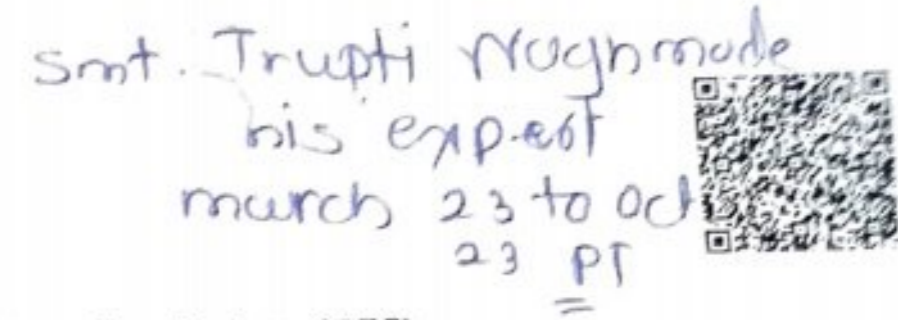 smt. Trupti Waghmade
his expert
march 23 to Oct
23 PT